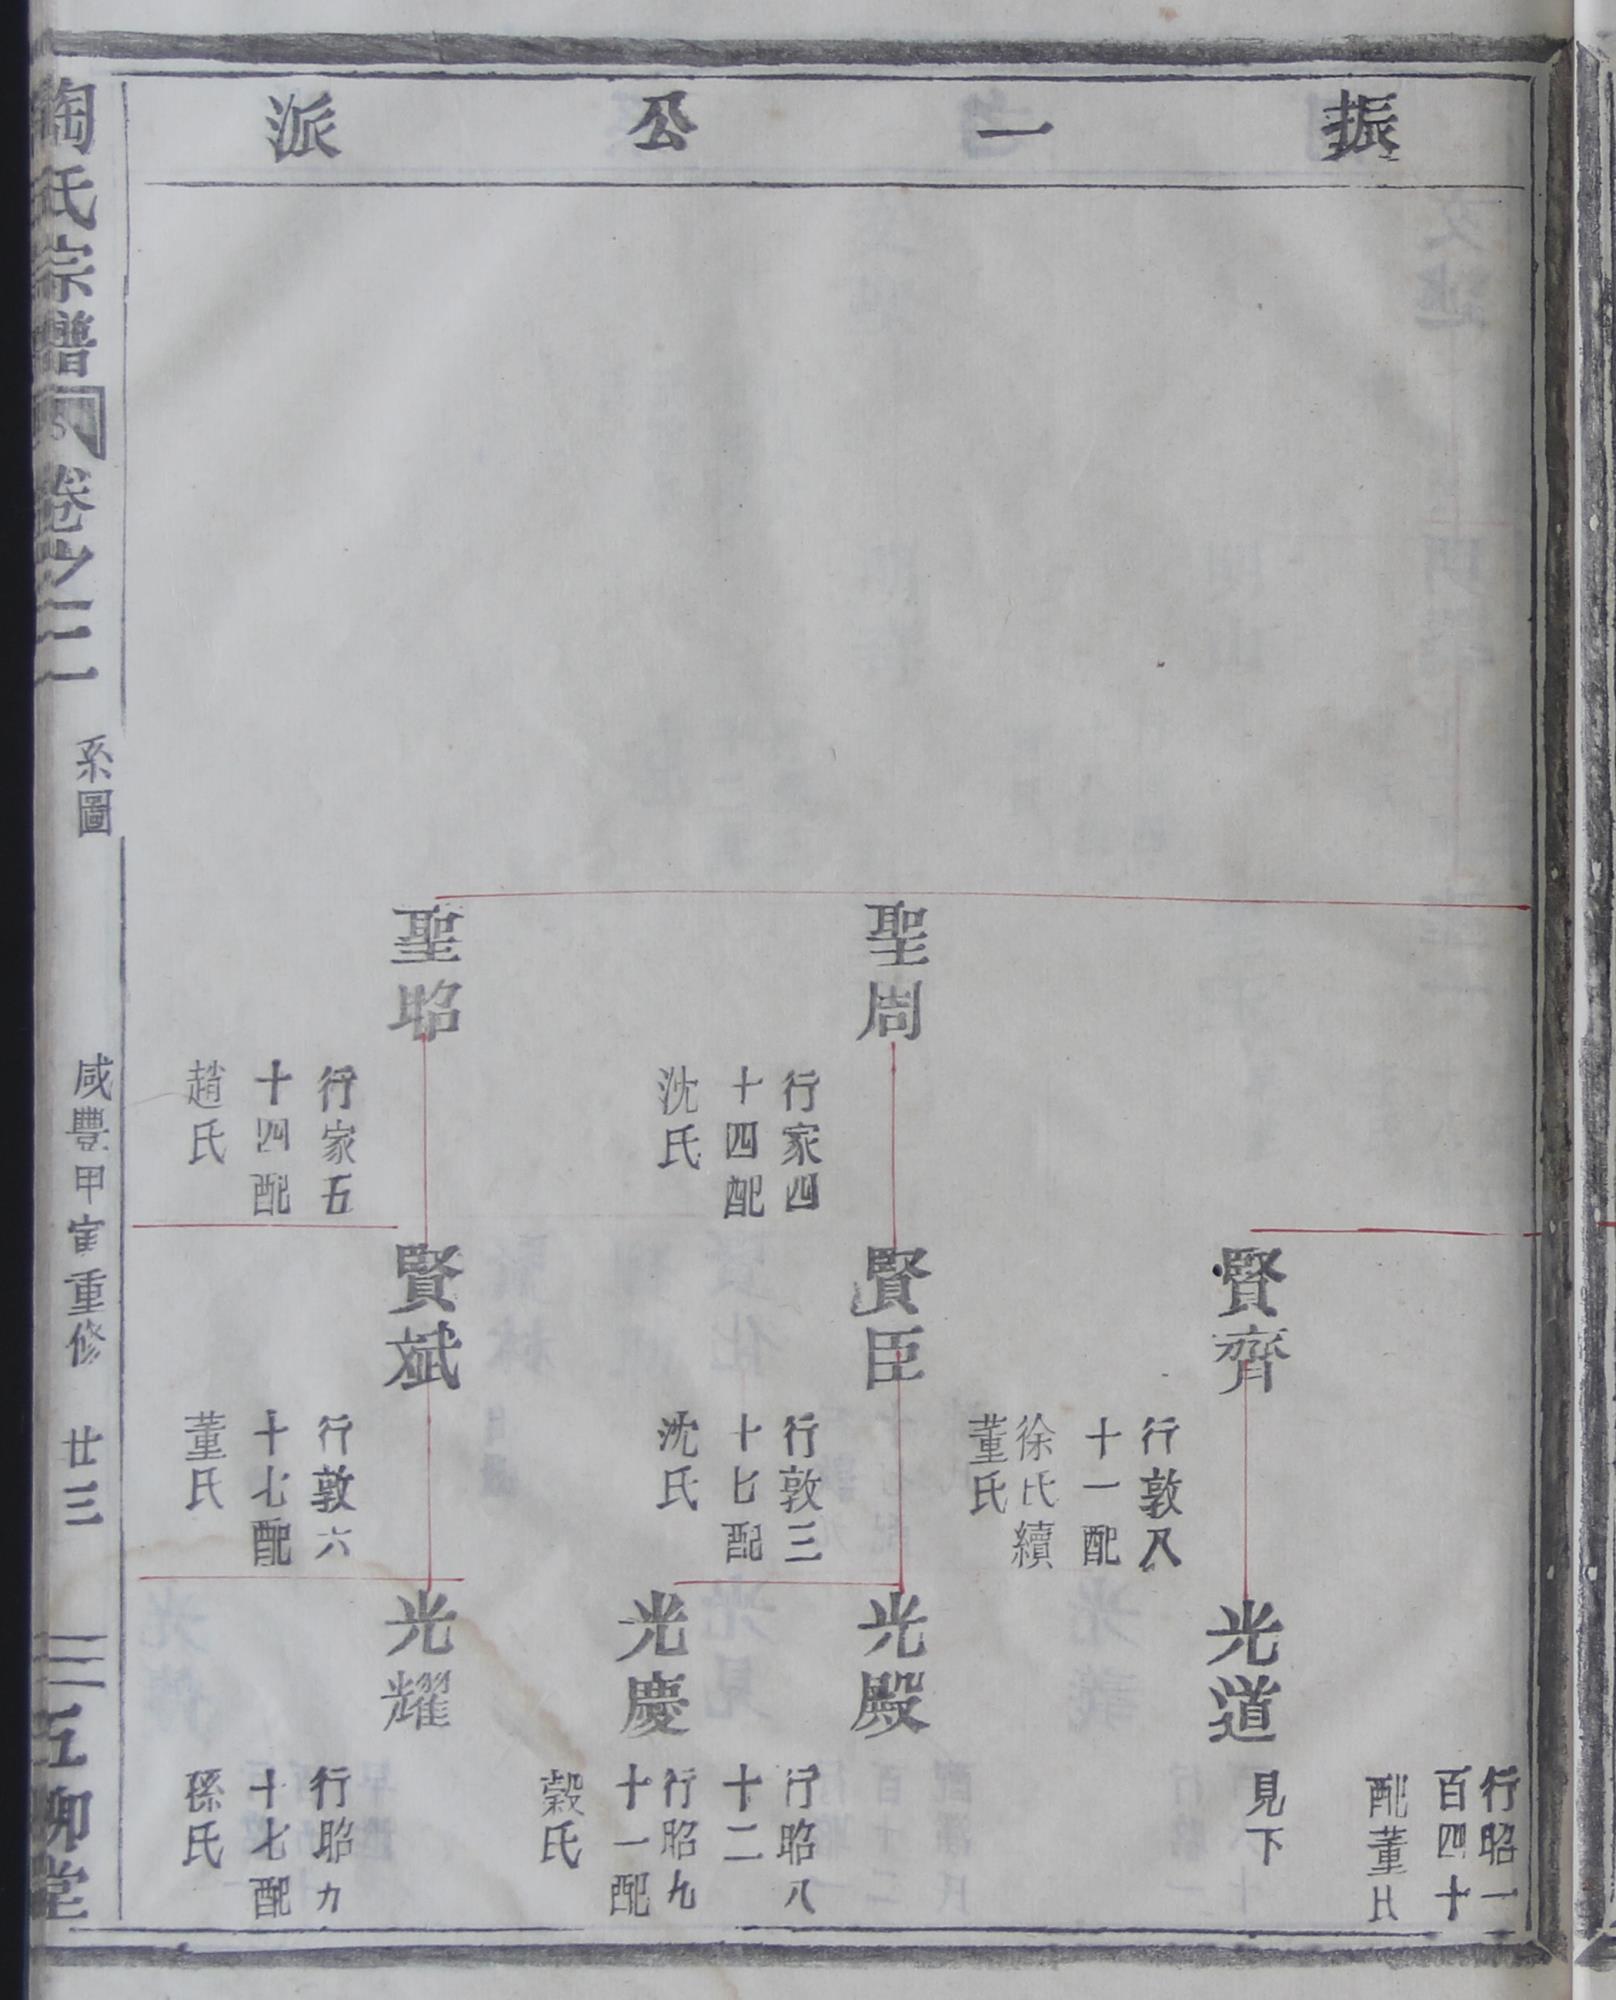 振一公派
聖周
行家四
十四配
沈氏
聖昭
行家五
十四配
趙氏
賢齊
行敦八
十一配
徐氏續
董氏
賢臣
行敦三
十七配
沈氏
賢斌
行敦六
十七配
董氏
行昭一
百四十
配董氏
光道
見下
光殿
行昭八
十二
光慶
行昭九
十一配
穀氏
光耀
行昭九
十七配
孫氏
陶氏宗譜
卷之二
系圖
咸豐甲寅重修
廿三
五柳堂